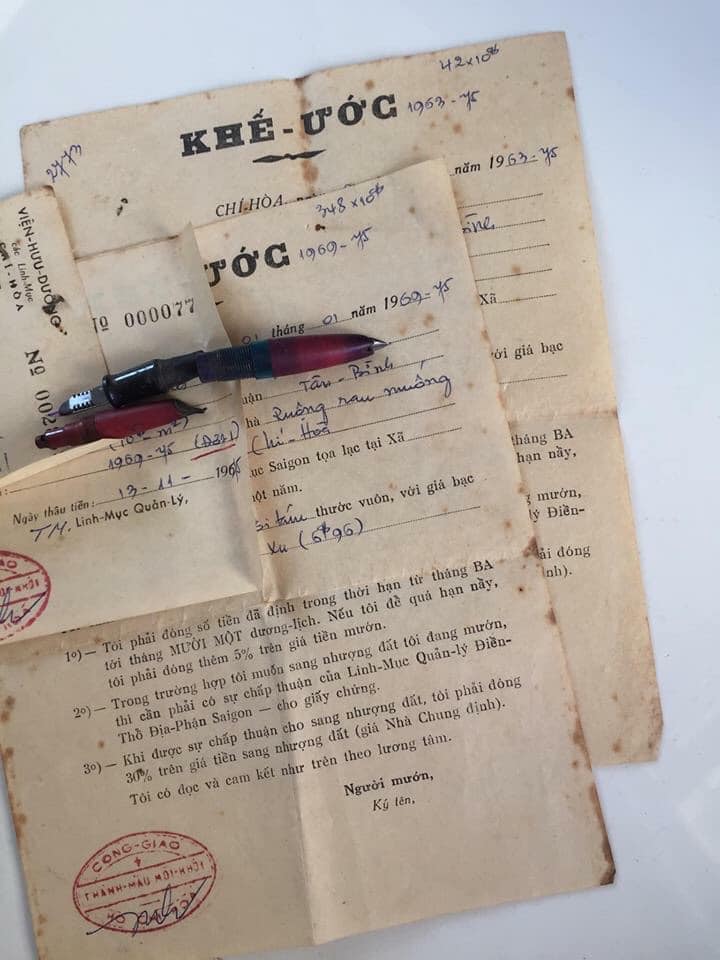 42 x 10
KHẾ-ƯỚC 1963-75
2773
CHÍ-HÒA,
năm 1963-75
Xã
với giá bạc
tháng BA
hạn nầy,
mướn,
Điền-
phải đóng
định).
348 x 10
ƯỚC 1969-75
01 tháng 01 năm 1969-75
Tân-Bình
Ruộng rau muống
Chí-Hòa
Saigon tọa lạc tại Xã
một năm.
thước vuôn, với giá bạc
Xu (6$96)
1o) — Tôi phải đóng số tiền đã định trong thời hạn từ tháng BA
tới tháng MƯỜI MỘT dương-lịch. Nếu tôi để quá hạn nầy,
tôi phải đóng thêm 5% trên giá tiền mướn.
2o) — Trong trường hợp tôi muốn sang nhượng đất tôi đang mướn,
thì cần phải có sự chấp thuận của Linh-Mục Quản-lý Điền-
Thổ Địa-Phận Saigon — cho giấy chứng.
3o) — Khi được sự chấp thuận cho sang nhượng đất, tôi phải đóng
30% trên giá tiền sang nhượng đất (giá Nhà Chung định).
Tôi có đọc và cam kết như trên theo lương tâm.
Người mướn,
Ký tên,
CÔNG-GIÁO
THÁNH-MẪU MÔI-KHÔI
VIỆN-HƯU-DƯỠNG
Các Linh-Mục
CHÍ-HÒA
No 002
No 000077
1969-75 (Đất)
Ngày thâu tiền: 13-11-1965
TM. Linh-Mục Quản-Lý,